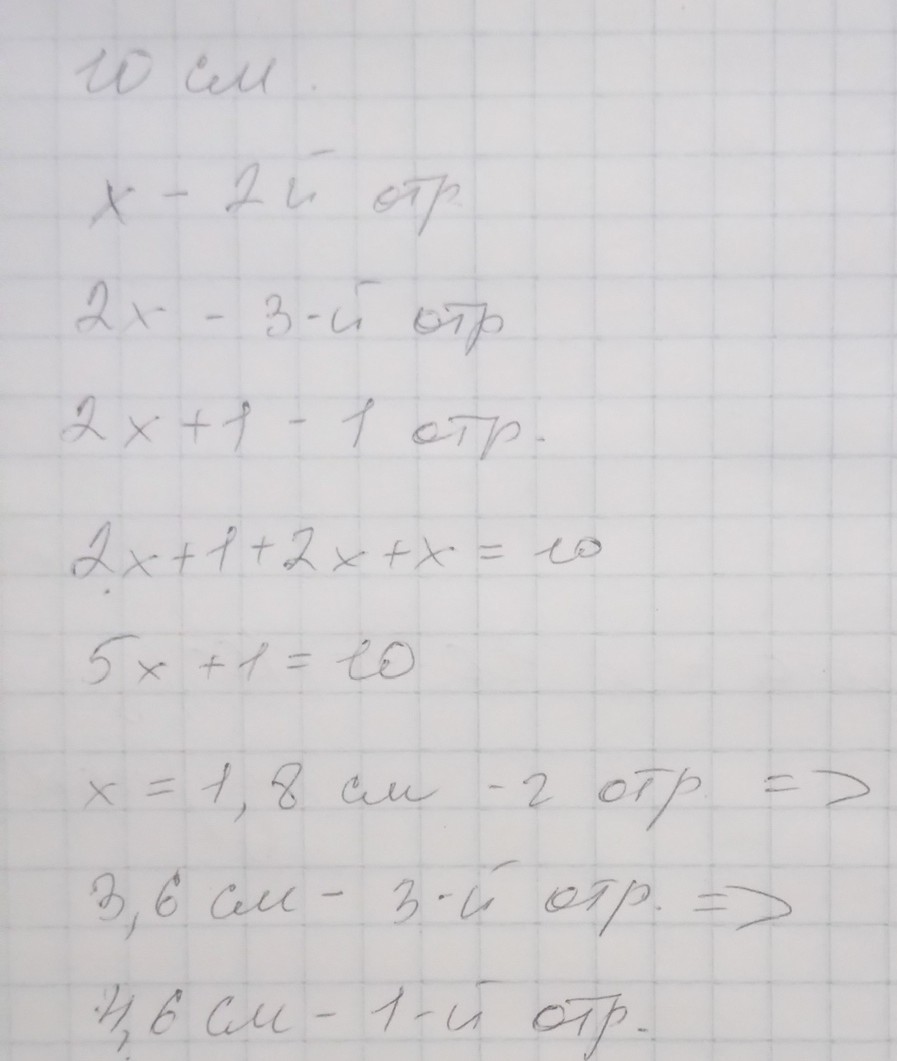 10 см.
x - 2й отр
2x - 3-й отр
2x + 1 - 1 отр.
2x + 1 + 2x + x = 10
5x + 1 = 10
x = 1,8 см - 2 отр =>
3,6 см - 3-й отр. =>
4,6 см - 1-й отр.